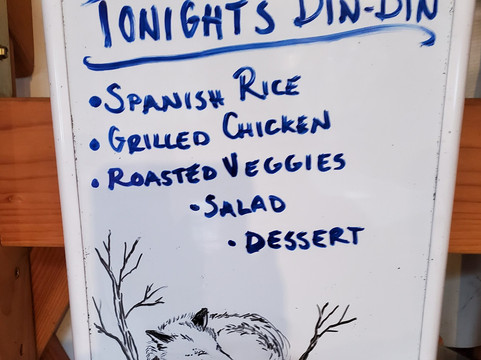 TONIGHTS DIN-DIN
• SPANISH RICE
• GRILLED CHICKEN
• ROASTED VEGGIES
• SALAD
• DESSERT